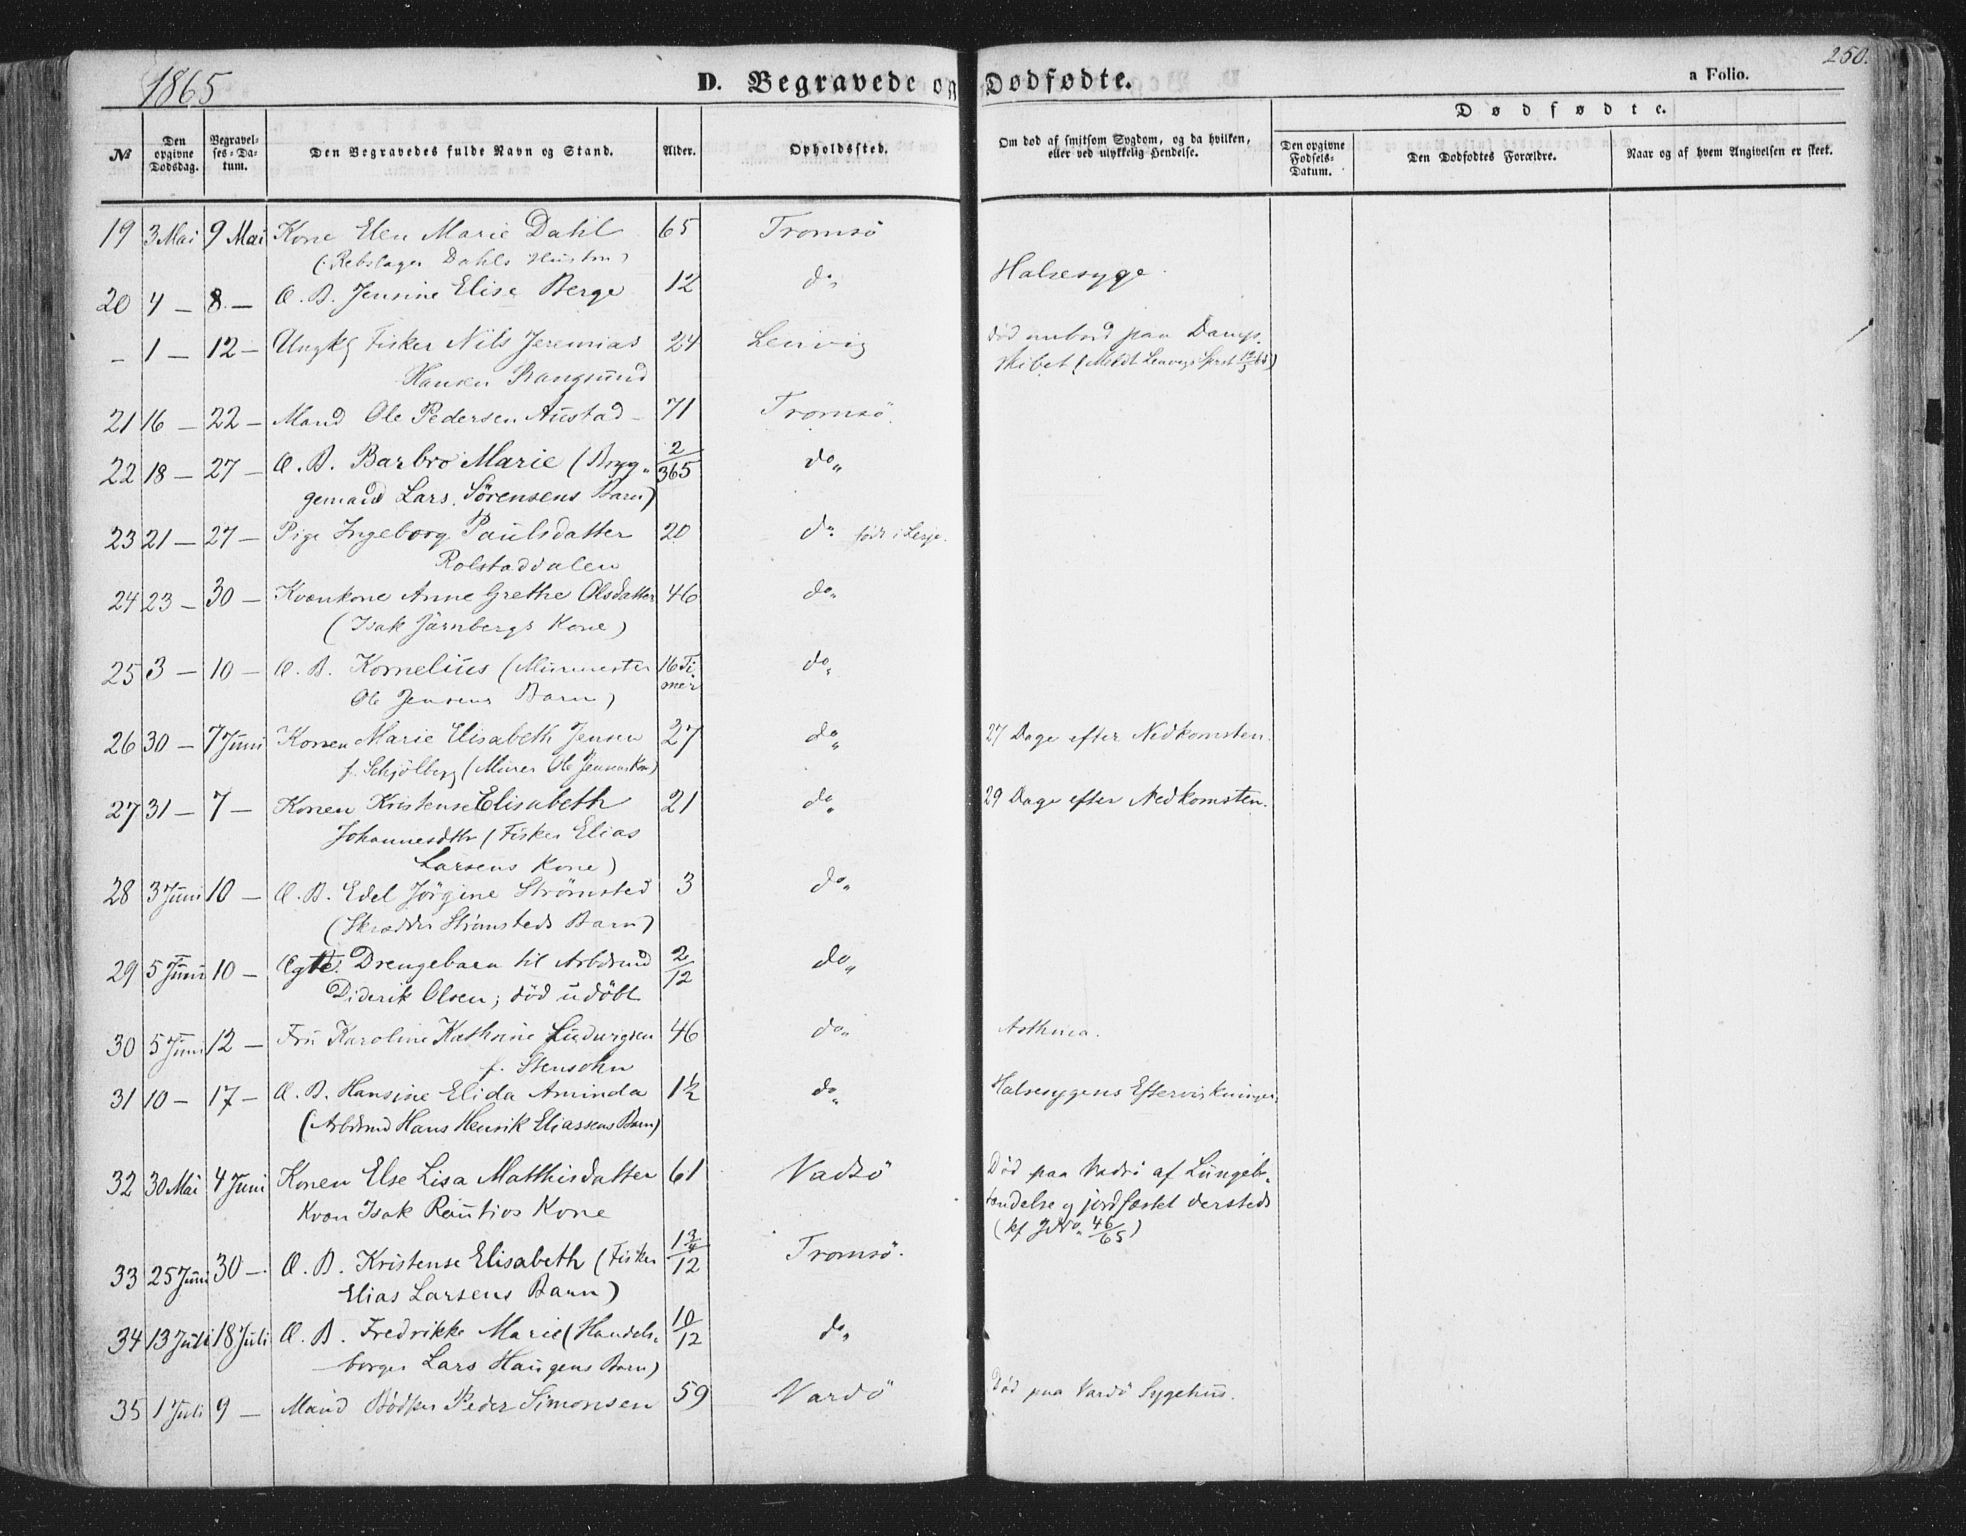 1865 D. Begravede og Dødfødte. a Folio. 250.
№ Den opgivne Dødsdag. Begravelses-Datum. Den Begravedes fulde Navn og Stand. Alder. Opholdssted. Om død af smitsom Sygdom, og da hvilken, eller ved ulykkelig Hendelse. Dødfødte.
Den opgivne Fødsels-Datum. Den Dødfødtes Forældre. Naar og af hvem Angivelsen er skeet.
19 3 Mai 9 Mai Kone Elen Marie Dahl 65 Tromsö
(: Rebslager Dahls Hustru)
20 4 — 8 — Æ. B. Jensine Elise Berge 12 do Halsesyge.
– 1 — 12 — Ungk Fisker Nils Jeremias 24 Lenvig död ombord paa Damp-
Hansen Rangsund skibet (Meddt Lenvigs Sprst
21 16 — 22 — Mand Ole Pedersen Austad 71 Tromsö.
22 18 — 27 — Æ. B. Barbro Marie (Bryg- 2/365 do
gemand Lars Sörensens Barn)
23 21 — 27 — Pige Ingeborg Paulsdatter 20 do födt i Lesje.
Rolstaddalen
24 23 — 30 — Kvænkone Anne Grethe Olsdatter 46 do
(Isak Järnbergs Kone)
25 3 — 10 — Æ. B. Kornelius (Murmester 16 Ti-
Ole Jensens Barn) mer do
26 30 — 7 Juni Konen Marie Elisabeth Jensen 27 do 27 Dage efter Nedkomsten.
f. Schjölberg (Murer Ole Jensens Kone)
27 31 — 7 — Konen Kristense Elisabeth 21 do 29 Dage efter Nedkomsten.
Johannesdtr (Fisker Elias
Larsens Kone)
28 3 Juni 10 — Æ. B. Edel Jörgine Strömsted 3 do
(Skrædder Strömsteds Barn)
29 5 Juni 10 — Ægte Drengebarn til Arbdsmd 2/12 do
Diderik Olsen; död udöbt
30 5 Juni 12 — Fru Karoline Kathrine Ludvigsen 46 do Asthma.
f. Stensohn
31 10 — 17 — Æ. B. Hansine Elida Aminda 1½ do Halsesygens Eftervirkninger.
(Arbdsmd Hans Henrik Eliassens Barn)
32 30 Mai 4 Juni Konen Else Lisa Matthisdatter 61 Vadsö Död paa Vadsö af Lungebe-
Kvæn Isak Rautios Kone tændelse og jordfæstet dersteds
(kf JNo. 46/65)
33 25 Juni 30 — Æ. B. Kristense Elisabeth (Fisker 1¾/12 Tromsö.
Elias Larsens Barn)
34 13 Juli 18 Juli Æ. B. Fredrikke Marie (Handels- 10/12 do
borger Lars Haugens Barn)
35 1 Juli 9 — Mand Bödker Peder Simonsen 59 Vardö Död paa Vardö Sygehus.